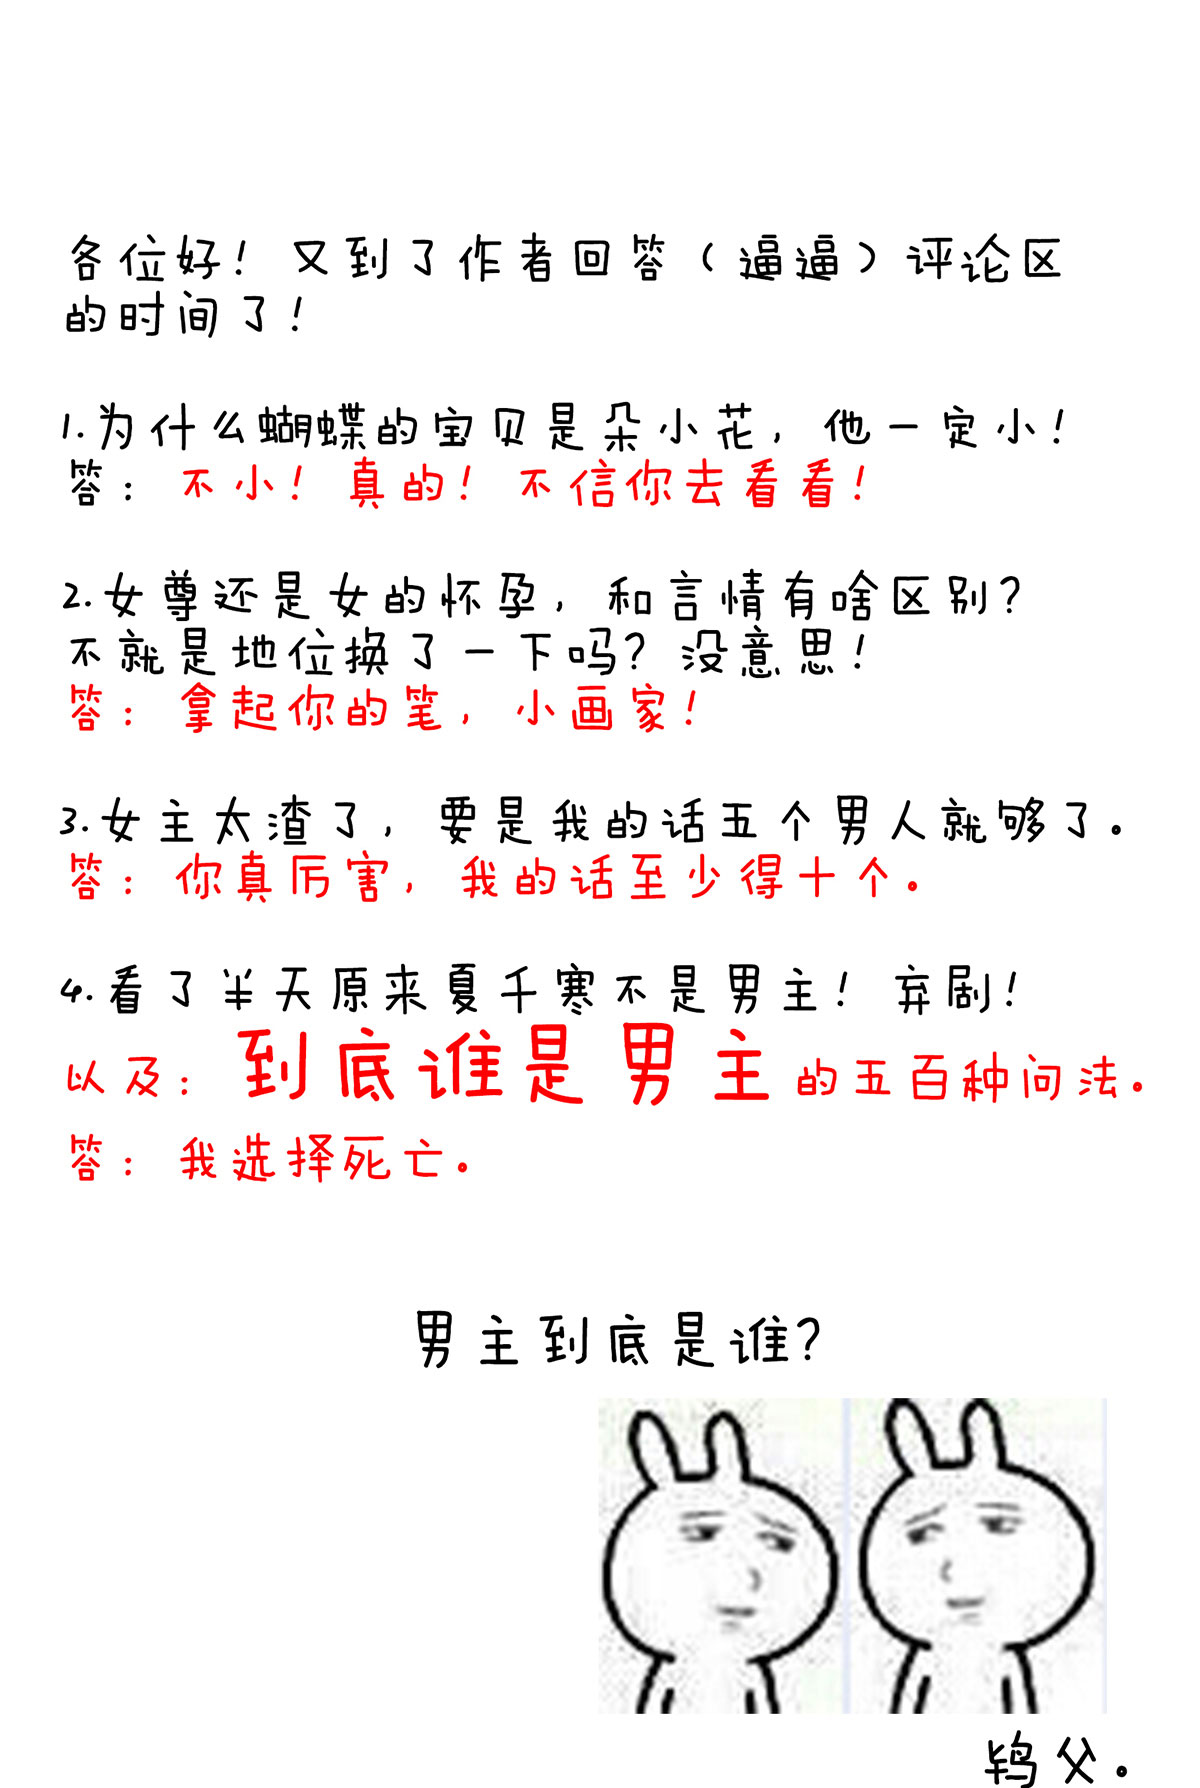 各位好！又到了作者回答（逼逼）评论区
的时间了！
1.为什么蝴蝶的宝贝是朵小花，他一定小！
答：不小！真的！不信你去看看！
2.女尊还是女的怀孕，和言情有啥区别？
不就是地位换了一下吗？没意思！
答：拿起你的笔，小画家！
3.女主太渣了，要是我的话五个男人就够了。
答：你真厉害，我的话至少得十个。
4.看了半天原来夏千寒不是男主！弃剧！
以及：到底谁是男主的五百种问法。
答：我选择死亡。
男主到底是谁？
鸨父。